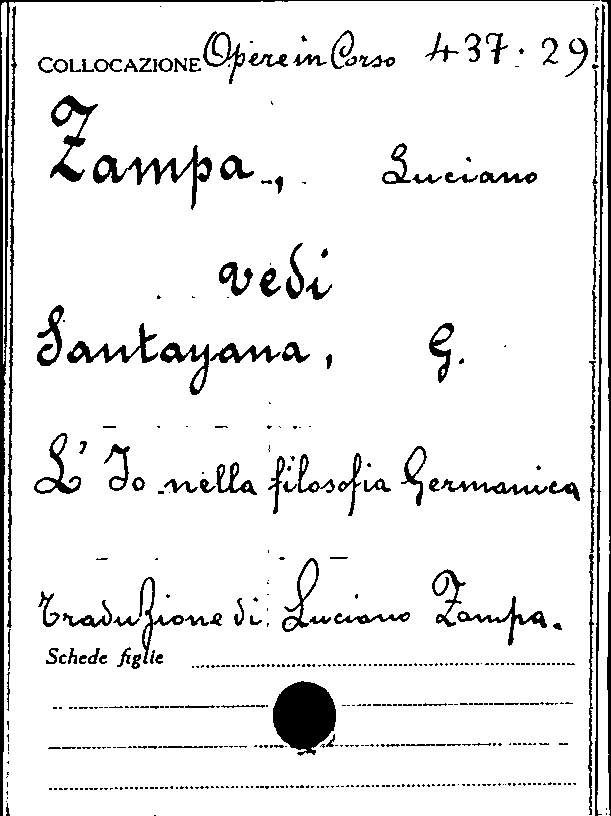 COLLOCAZIONE Opere in Corso 437.29
Zampa, Luciano
vedi
Santayana, G.
L'Io nella filosofia Germanica
Traduzione di Luciano Zampa.
Schede figlie